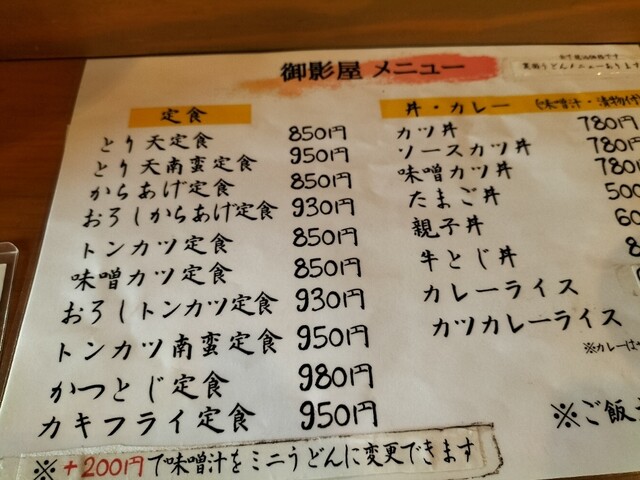 御影屋 メニュー
全て税込価格です
裏面うどんメニューあります
定食
とり天定食 850円
とり天南蛮定食 950円
からあげ定食 850円
おろしからあげ定食 930円
トンカツ定食 850円
味噌カツ定食 850円
おろしトンカツ定食 930円
トンカツ南蛮定食 950円
かつとじ定食 980円
カキフライ定食 950円
※+200円で味噌汁をミニうどんに変更できます
丼・カレー (味噌汁・漬物付)
カツ丼 780円
ソースカツ丼 780円
味噌カツ丼 780
たまご丼 500
親子丼 60
牛とじ丼 8
カレーライス
カツカレーライス
※カレーは
※ご飯